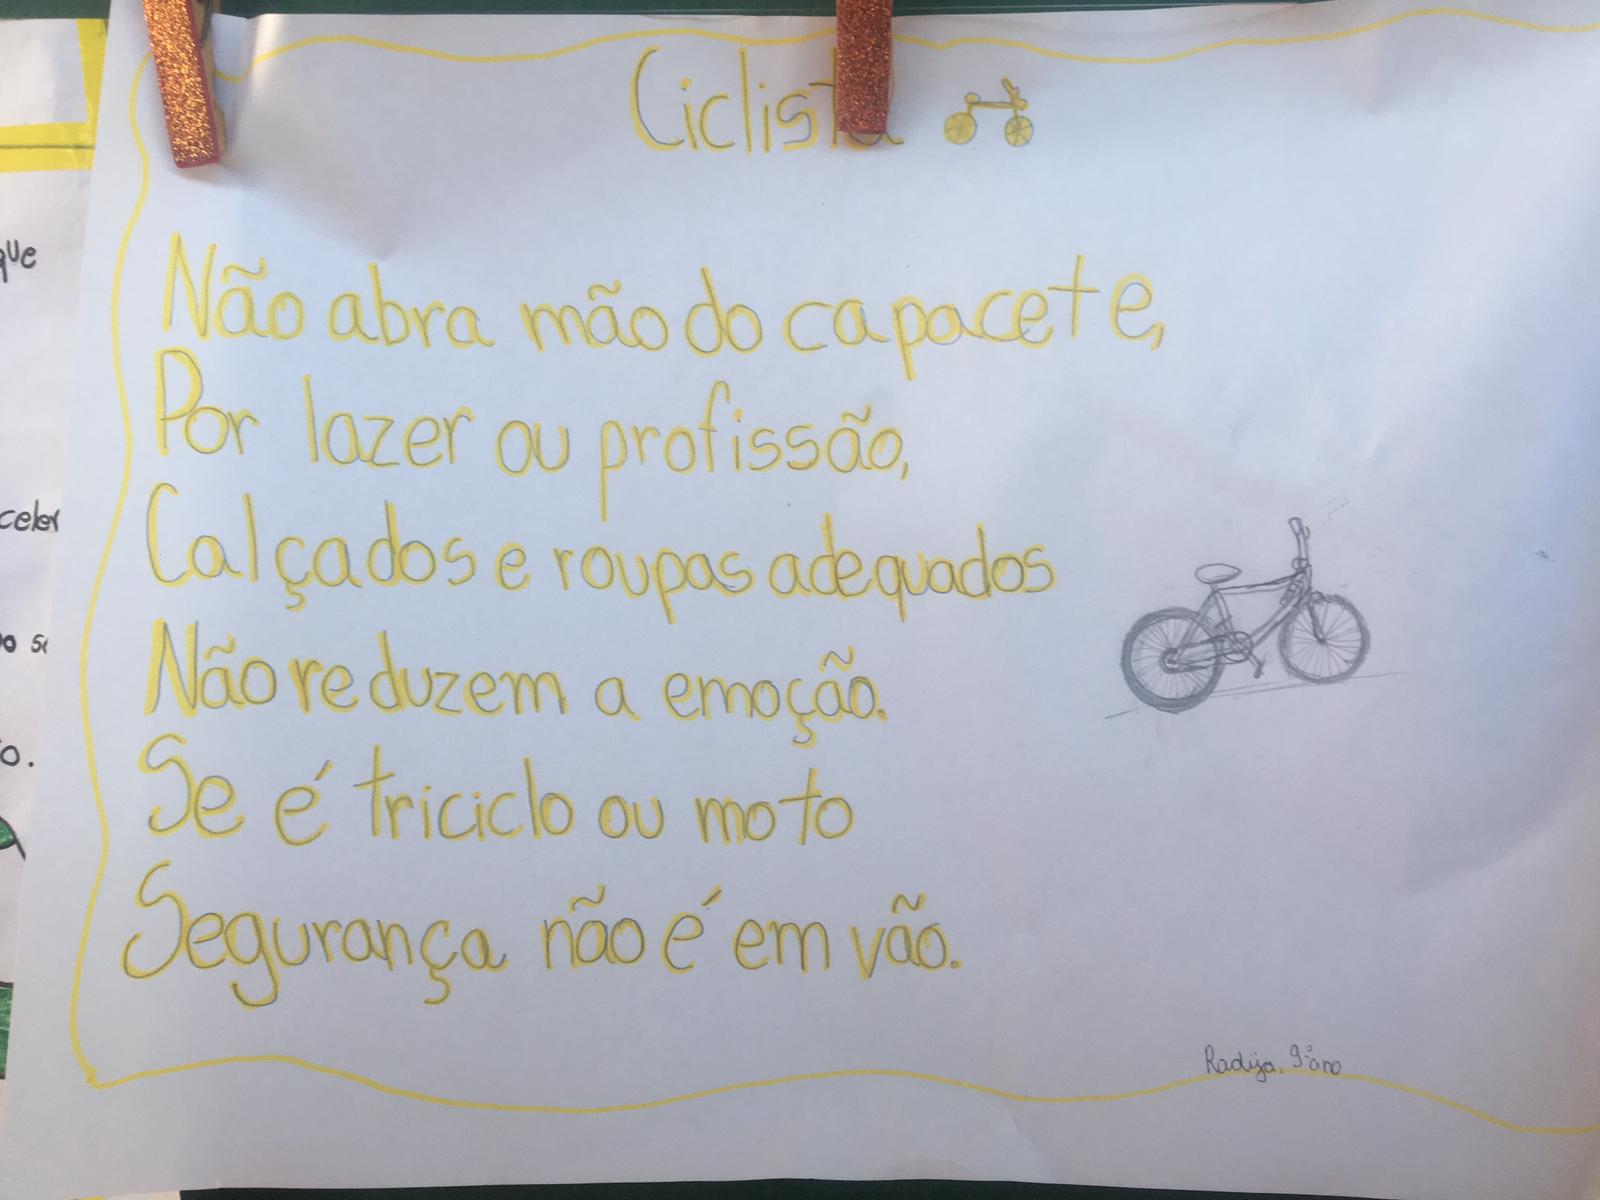 Ciclista
Não abra mão do capacete,
Por lazer ou profissão,
Calçados e roupas adequados
Não reduzem a emoção.
Se é triciclo ou moto
Segurança não é em vão.
Radija, 9º ano
que
o.